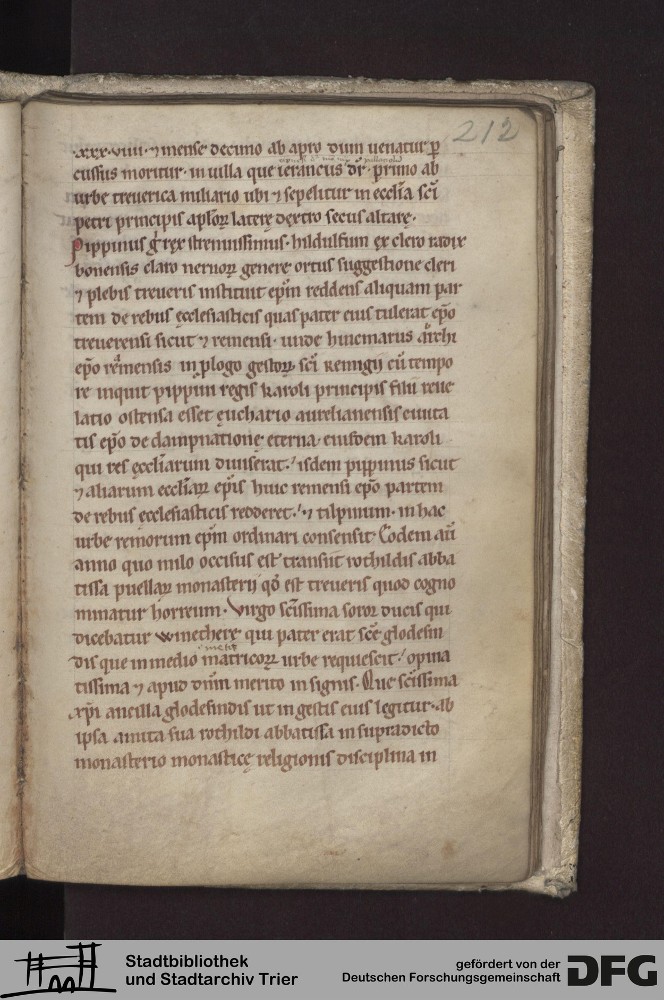 212
.xxx.viiii. ⁊ mense decimo ab apro dum uenatur ꝑ
cussus moritur. in uilla que ierancus dr̄. primo ab
urbe treuerica miliario ubi ⁊ sepelitur in eccl̄ia sc̄i
petri principis apl̄oꝝ laterę dextro secus altare.
Pippinus g̊ rex strenuissimus. hildulfum ex clero radix
bonensis claro neruoꝝ genere ortus suggestione cleri
⁊ plebis treueris instituit ep̄m reddens aliquam par
tem de rebus ęcclesiasticis quas pater eius tulerat ep̄o
treuerensi sicut ⁊ remensi. unde huicmarus arc̄hi
ep̄o rēmensis in ꝓlogo gestoꝝ. sc̄i Remigii cū tempo
re inquit pippini regis karoli principis filii reue
latio ostensa esset ęuchario aurelianensis ciuita
tis ep̄o de dampnatione ęterna. eiusdem karoli
qui res ęccl̄iarum diuiserat. isdem pippinus sicut
⁊ aliarum eccl̄iaꝝ ep̄is huic remensi ep̄o partem
de rebus ęcclesiasticis redderet. ⁊ tilpinum. in hac
urbe remorum ep̄m ordinari consensit. Eodem aūt
anno quo milo occisus est transiit rothildis abba
tissa puellaꝝ monasterij qđ est treueris quod cogno
minatur horreum. Virgo sc̄issima soror ducis qui
dicebatur winetherę qui pater erat sc̄ę glodesin
dis que in medio matricoꝝ urbe requiescit. opina
tissima ⁊ apud dn̄m merito insignis. Que sc̄issima
xp̄i ancilla glodesindis ut in gestis eius legitur. ab
ipsa amita sua rothildi abbatissa in supradicto
monasterio monasticę religionis disciplina in
Stadtbibliothek
und Stadtarchiv Trier
gefördert von der
Deutschen Forschungsgemeinschaft
DFG